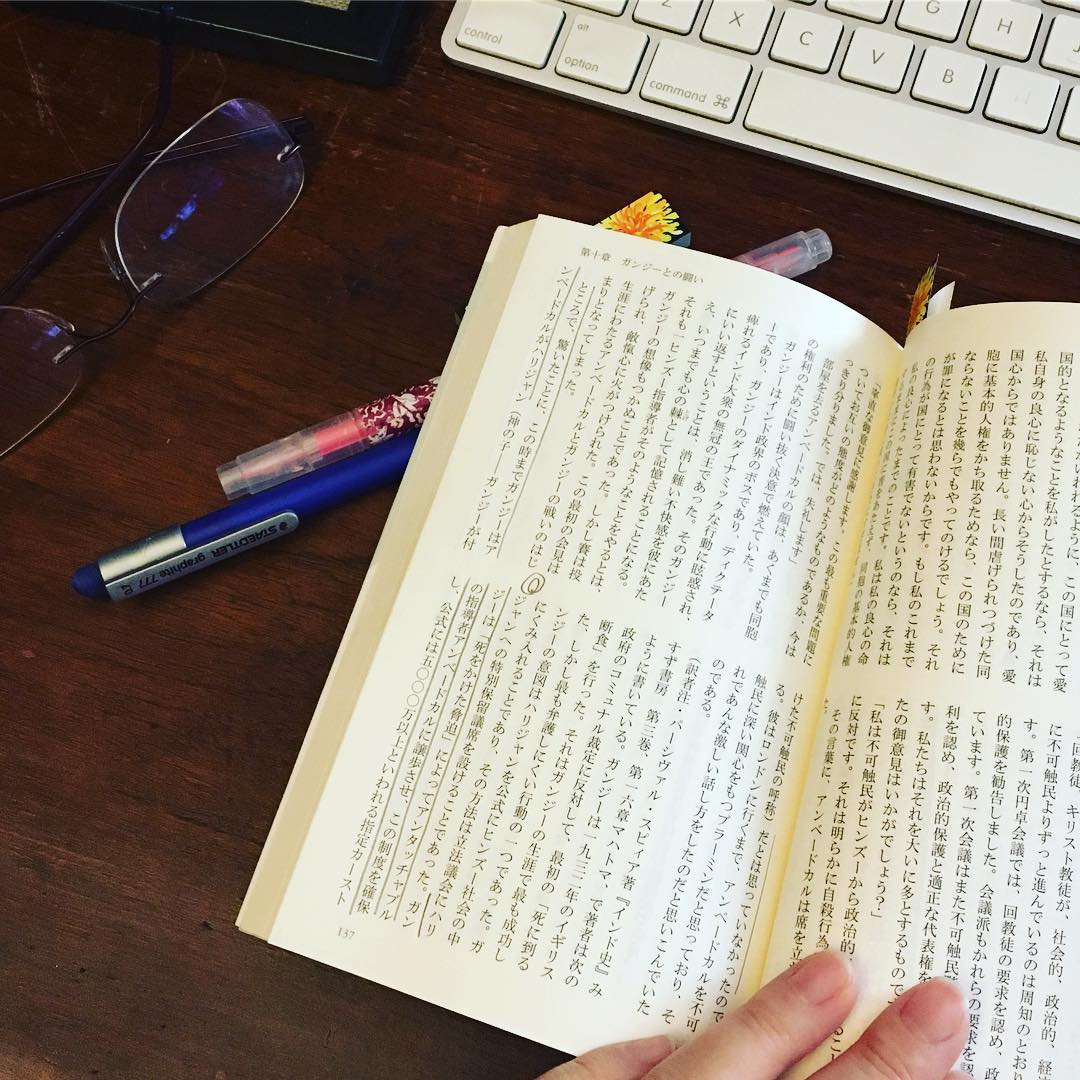 control
alt
option
command ⌘
Z
X
C
V
B
G
H
N
STAEDTLER
graphite 777
国的となるようなことを私がしたとするなら、それは
私自身の良心に恥じない心からそうしたのであり、愛
国心からではありません。長い間虐げられつづけた同
胞に基本的人権をかち取るためなら、この国のために
ならないことを幾らでもやってのけるでしょう。それ
が罪になるとは思わないからです。もし私のこれまで
の行為が国にとって有害でないというのなら、それは
私の良心によったまでのことです。私は私の良心の命
同胞の基本的人権
回教徒、キリスト教徒が、社会的、政治的、
に不可触民よりずっと進んでいるのは周知のとおり
す。第一次円卓会議では、回教徒の要求を認め、政
的保護を勧告しました。会議派もかれらの要求を
ています。第一次会議はまた不可触民
利を認め、政治的保護と適正な代表権を
す。私たちはそれを大いに多とするもので
たの御意見はいかがでしょう？」
「私は不可触民がヒンズーから政治的
に反対です。それは明らかに自殺行為
その言葉に、アンベードカルは席を立
第十章　ガンジーとの闘い
「率直な御意見に感謝します。この最も重要な問題に
ついておたいの態度がどのようなものであるか、今は
っきり分りました。では、失礼します」
部屋を去るアンベードカルの顔は、あくまでも同胞
の権利のために闘い抜く決意で燃えていた。
ガンジーはインド政界のボスであり、ディクテータ
ーであり、ガンジーのダイナミックな行動に眩惑され、
痺れるインド大衆の無冠の王であった。そのガンジー
にいい返すということは、消し難い不快感を彼にあた
え、いつまでも心の棘として記憶されることになる。
それも一ヒンズー指導者がそのようなことをやるとは、
ガンジーの想像もつかぬことであった。しかし賽は投
げられ、敵愾心に火がつけられた。この最初の会見は
生涯にわたるアンベードカルとガンジーの戦いのはじ
まりとなってしまった。
ところで、驚いたことに、この時までガンジーはア
ンベードカルがハリジャン（神の子――ガンジーが付
けた不可触民の呼称）だとは思っていなかったので
る。彼はロンドンに行くまで、アンベードカルを不可
触民に深い関心をもつブラーミンだと思っており、そ
れであんな激しい話し方をしたのだと思いこんでいた
のである。
（訳者注　パーシヴァル・スピィア著『インド史』み
すず書房　第三巻、第一六章マハトマ、で著者は次の
ように書いている。ガンジーは一九三二年のイギリス
政府のコミュナル裁定に反対して、最初の「死に到る
断食」を行った。それはガンジーの生涯で最も成功し
た、しかし最も弁護しにくい行動の一つであった。ガ
ンジーの意図はハリジャンを公式にヒンズー社会の中
にくみ入れることであり、その方法は立法議会にハリ
ジャンへの特別保留議席を設けることであった。ガン
ジーは「死をかけた脅迫」によってアンタッチャブル
の指導者アンベードカルに譲歩させ、この制度を確保
し、公式には五〇〇〇万以上といわれる指定カースト
137